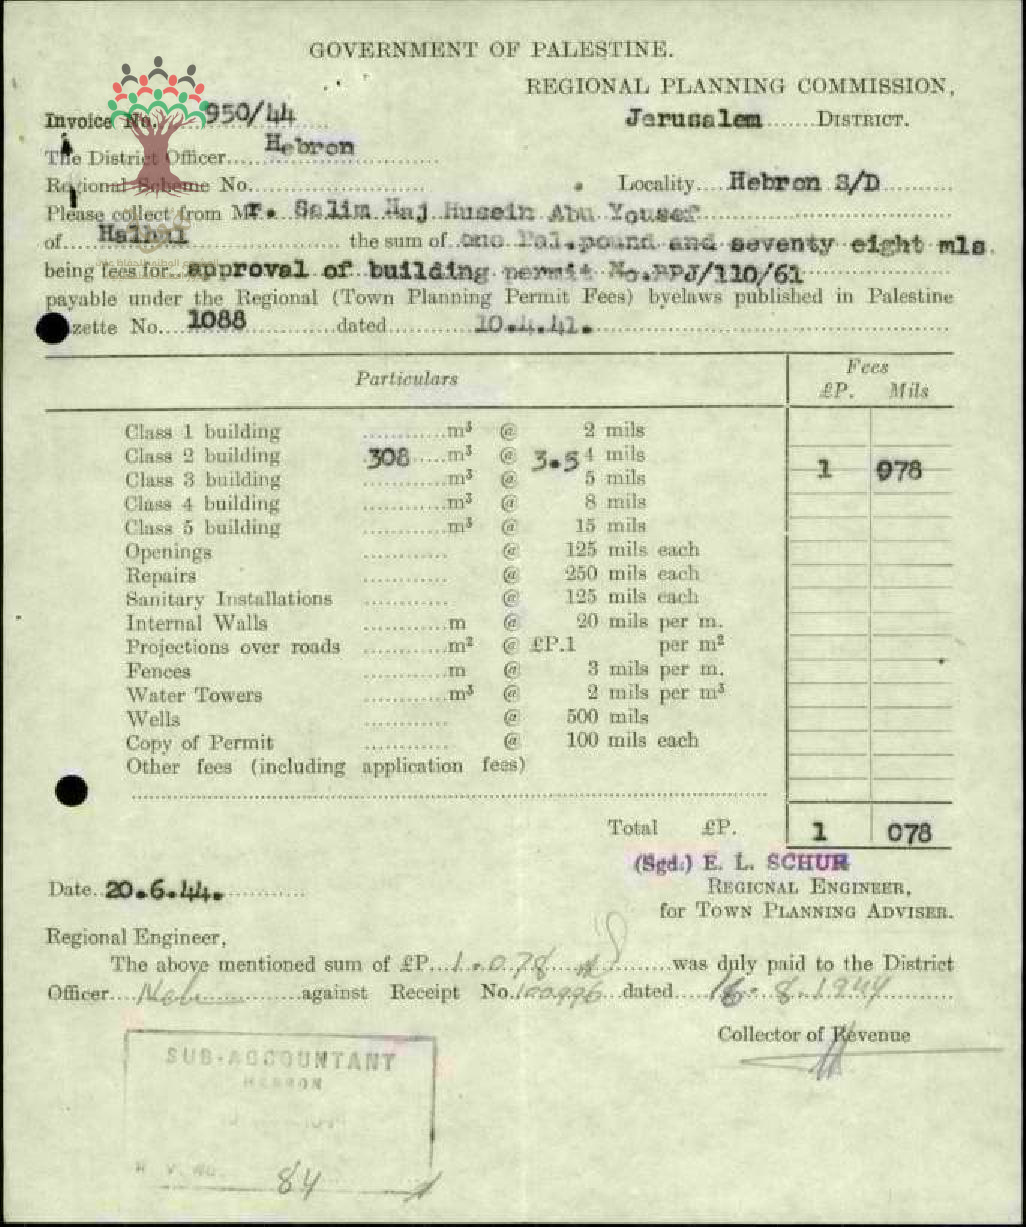 GOVERNMENT OF PALESTINE.
REGIONAL PLANNING COMMISSION,
Invoice No. 950/44
Jerusalem DISTRICT.
The District Officer Hebron
Regional Scheme No.
Locality Hebron S/D
Please collect from Mr. Salim Haj Husein Abu Yousef
of Halhul the sum of one Pal.pound and seventy eight mls.
being fees for approval of building permit No.PPJ/110/61
payable under the Regional (Town Planning Permit Fees) byelaws published in Palestine
zette No. 1088 dated 10.4.41.
Particulars
Fees
£P. Mils
Class 1 building m³ @ 2 mils
Class 2 building 308 m³ @ 3.5 4 mils 1 078
Class 3 building m³ @ 5 mils
Class 4 building m³ @ 8 mils
Class 5 building m³ @ 15 mils
Openings @ 125 mils each
Repairs @ 250 mils each
Sanitary Installations @ 125 mils each
Internal Walls m @ 20 mils per m.
Projections over roads m² @ £P.1 per m²
Fences m @ 3 mils per m.
Water Towers m³ @ 2 mils per m³
Wells @ 500 mils
Copy of Permit @ 100 mils each
Other fees (including application fees)
Total £P. 1 078
(Sgd.) E. L. SCHUR
Date. 20.6.44.
REGIONAL ENGINEER,
for TOWN PLANNING ADVISER.
Regional Engineer,
The above mentioned sum of £P. 1.078 was duly paid to the District
Officer against Receipt No. dated 16.8.1944
Collector of Revenue
SUB-ACCOUNTANT
HEBRON
R. V. NO. 84